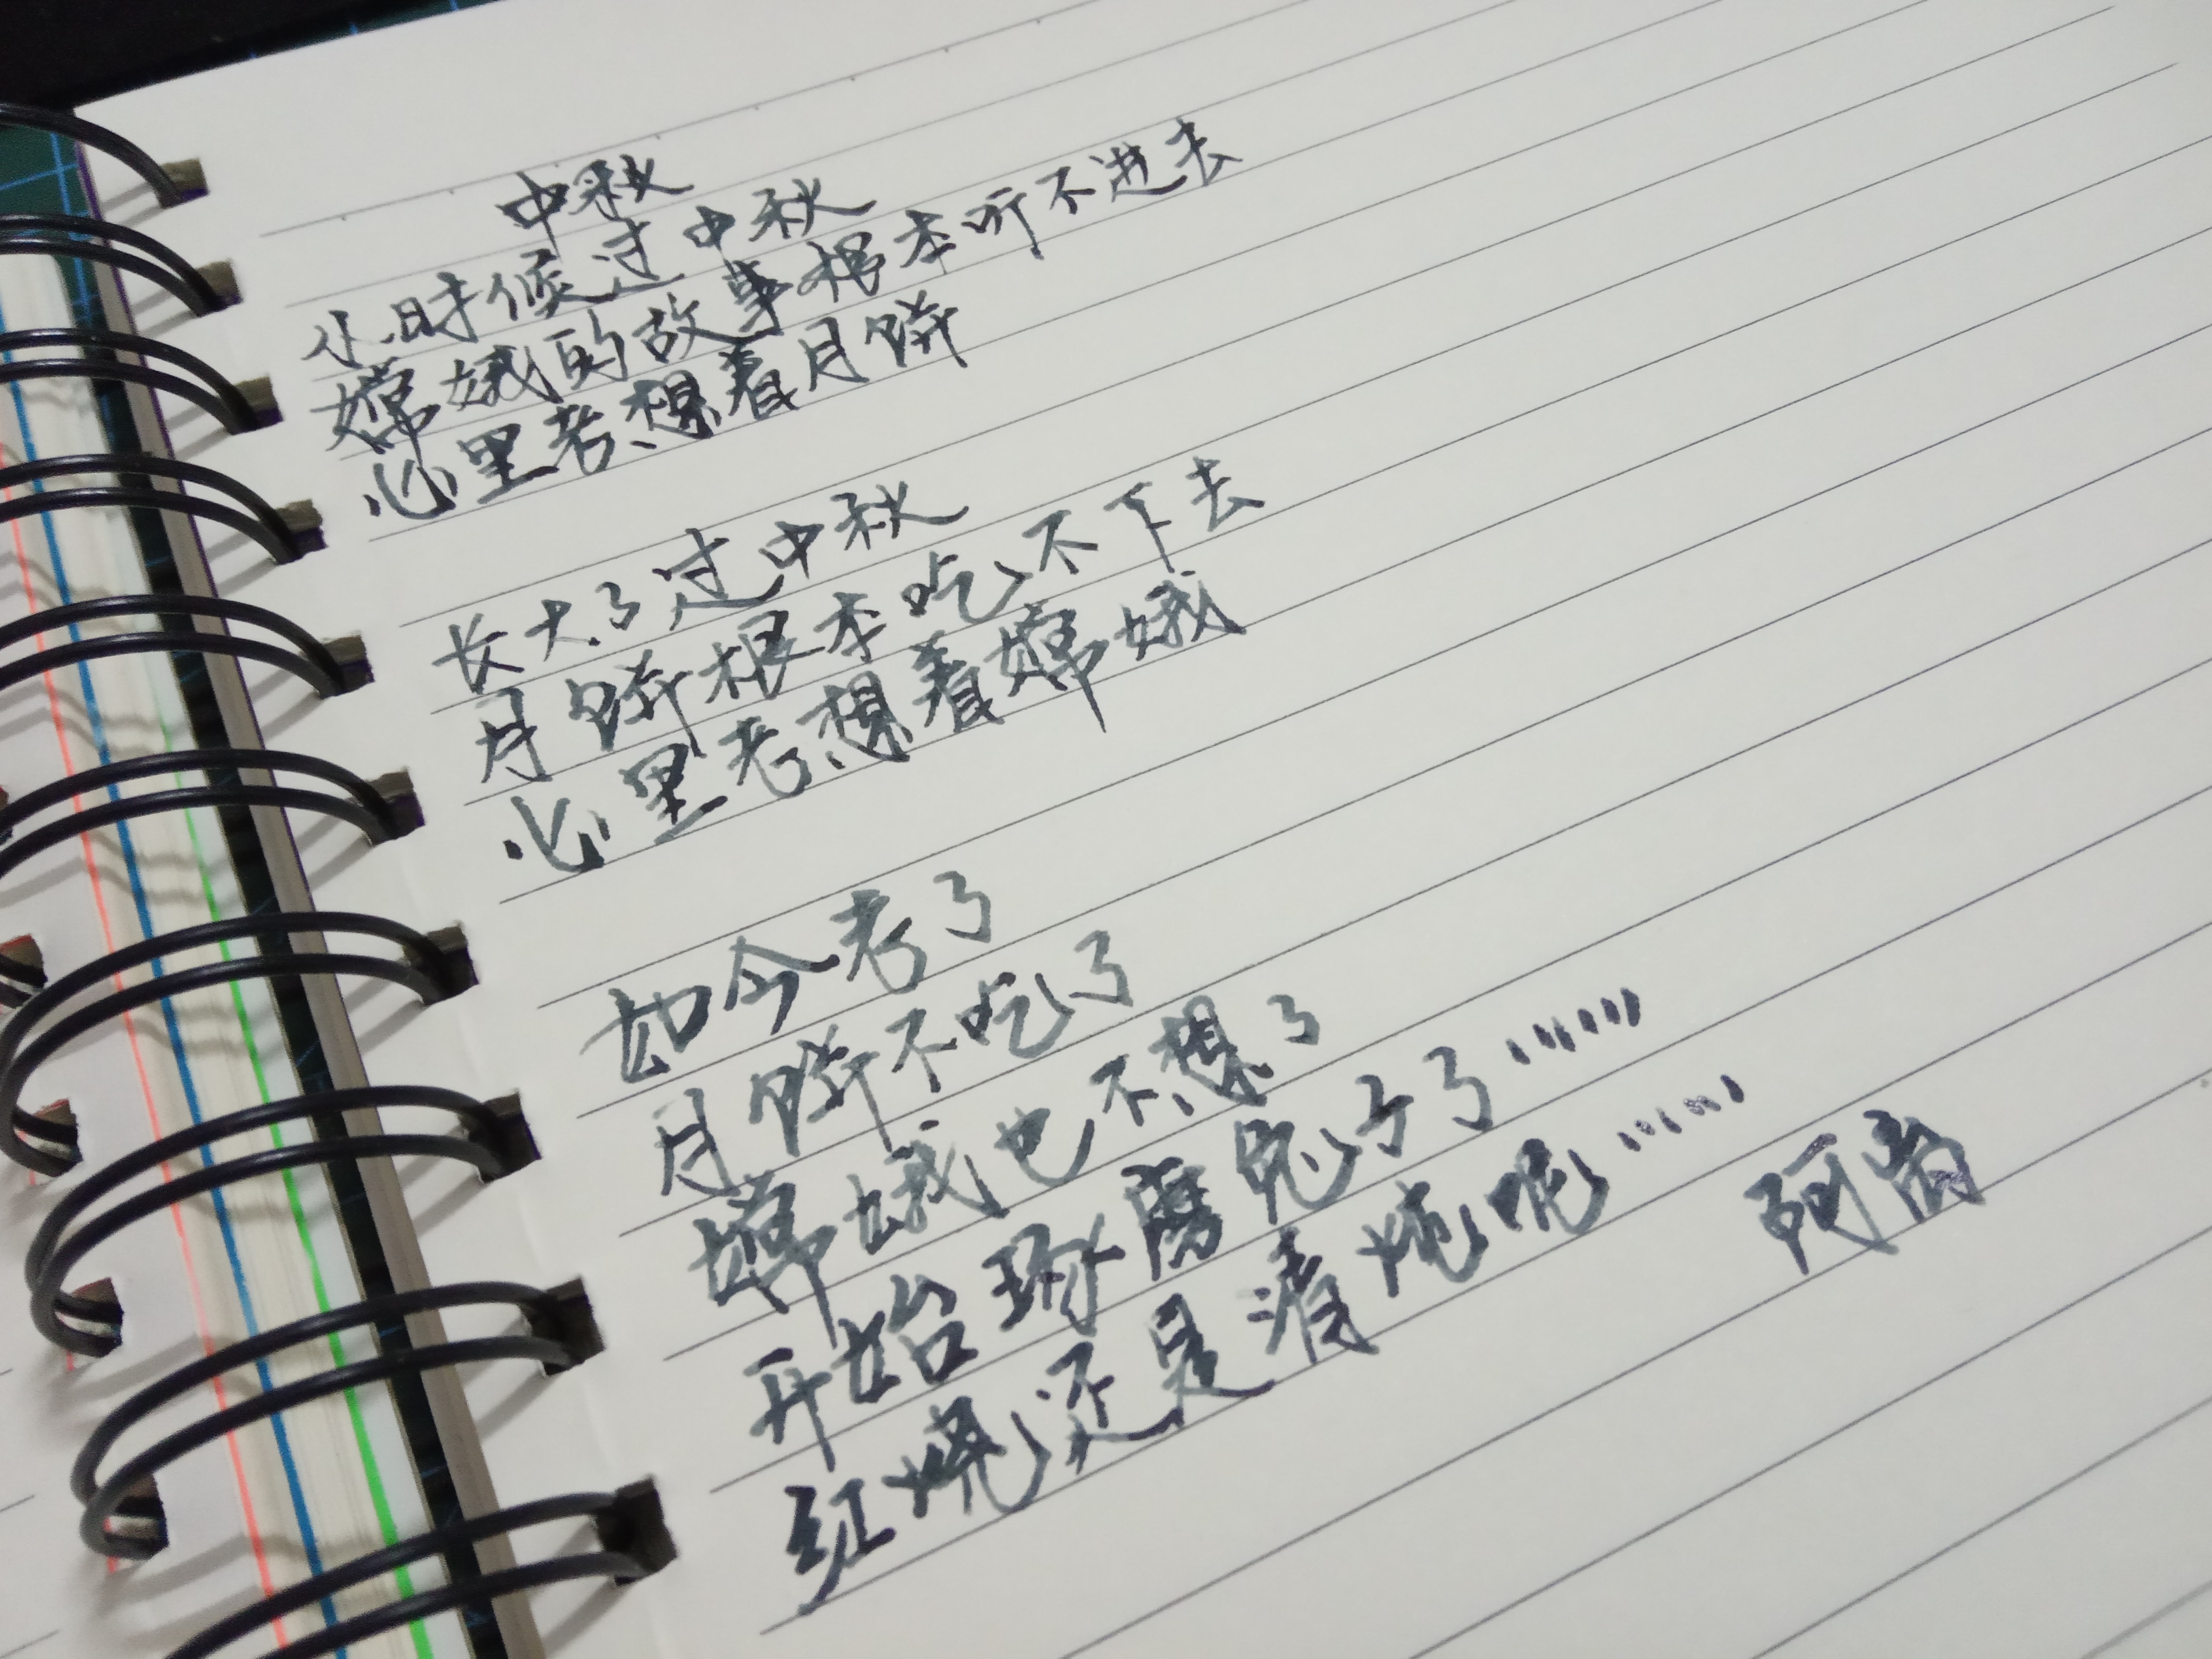 中秋
小时候过中秋
嫦娥的故事根本听不进去
心里老想着月饼
长大了过中秋
月饼根本吃不下去
心里老想着嫦娥
如今老了
月饼不吃了
嫦娥也不想了
开始琢磨兔子了……
红烧还是清炖呢……
阿尚